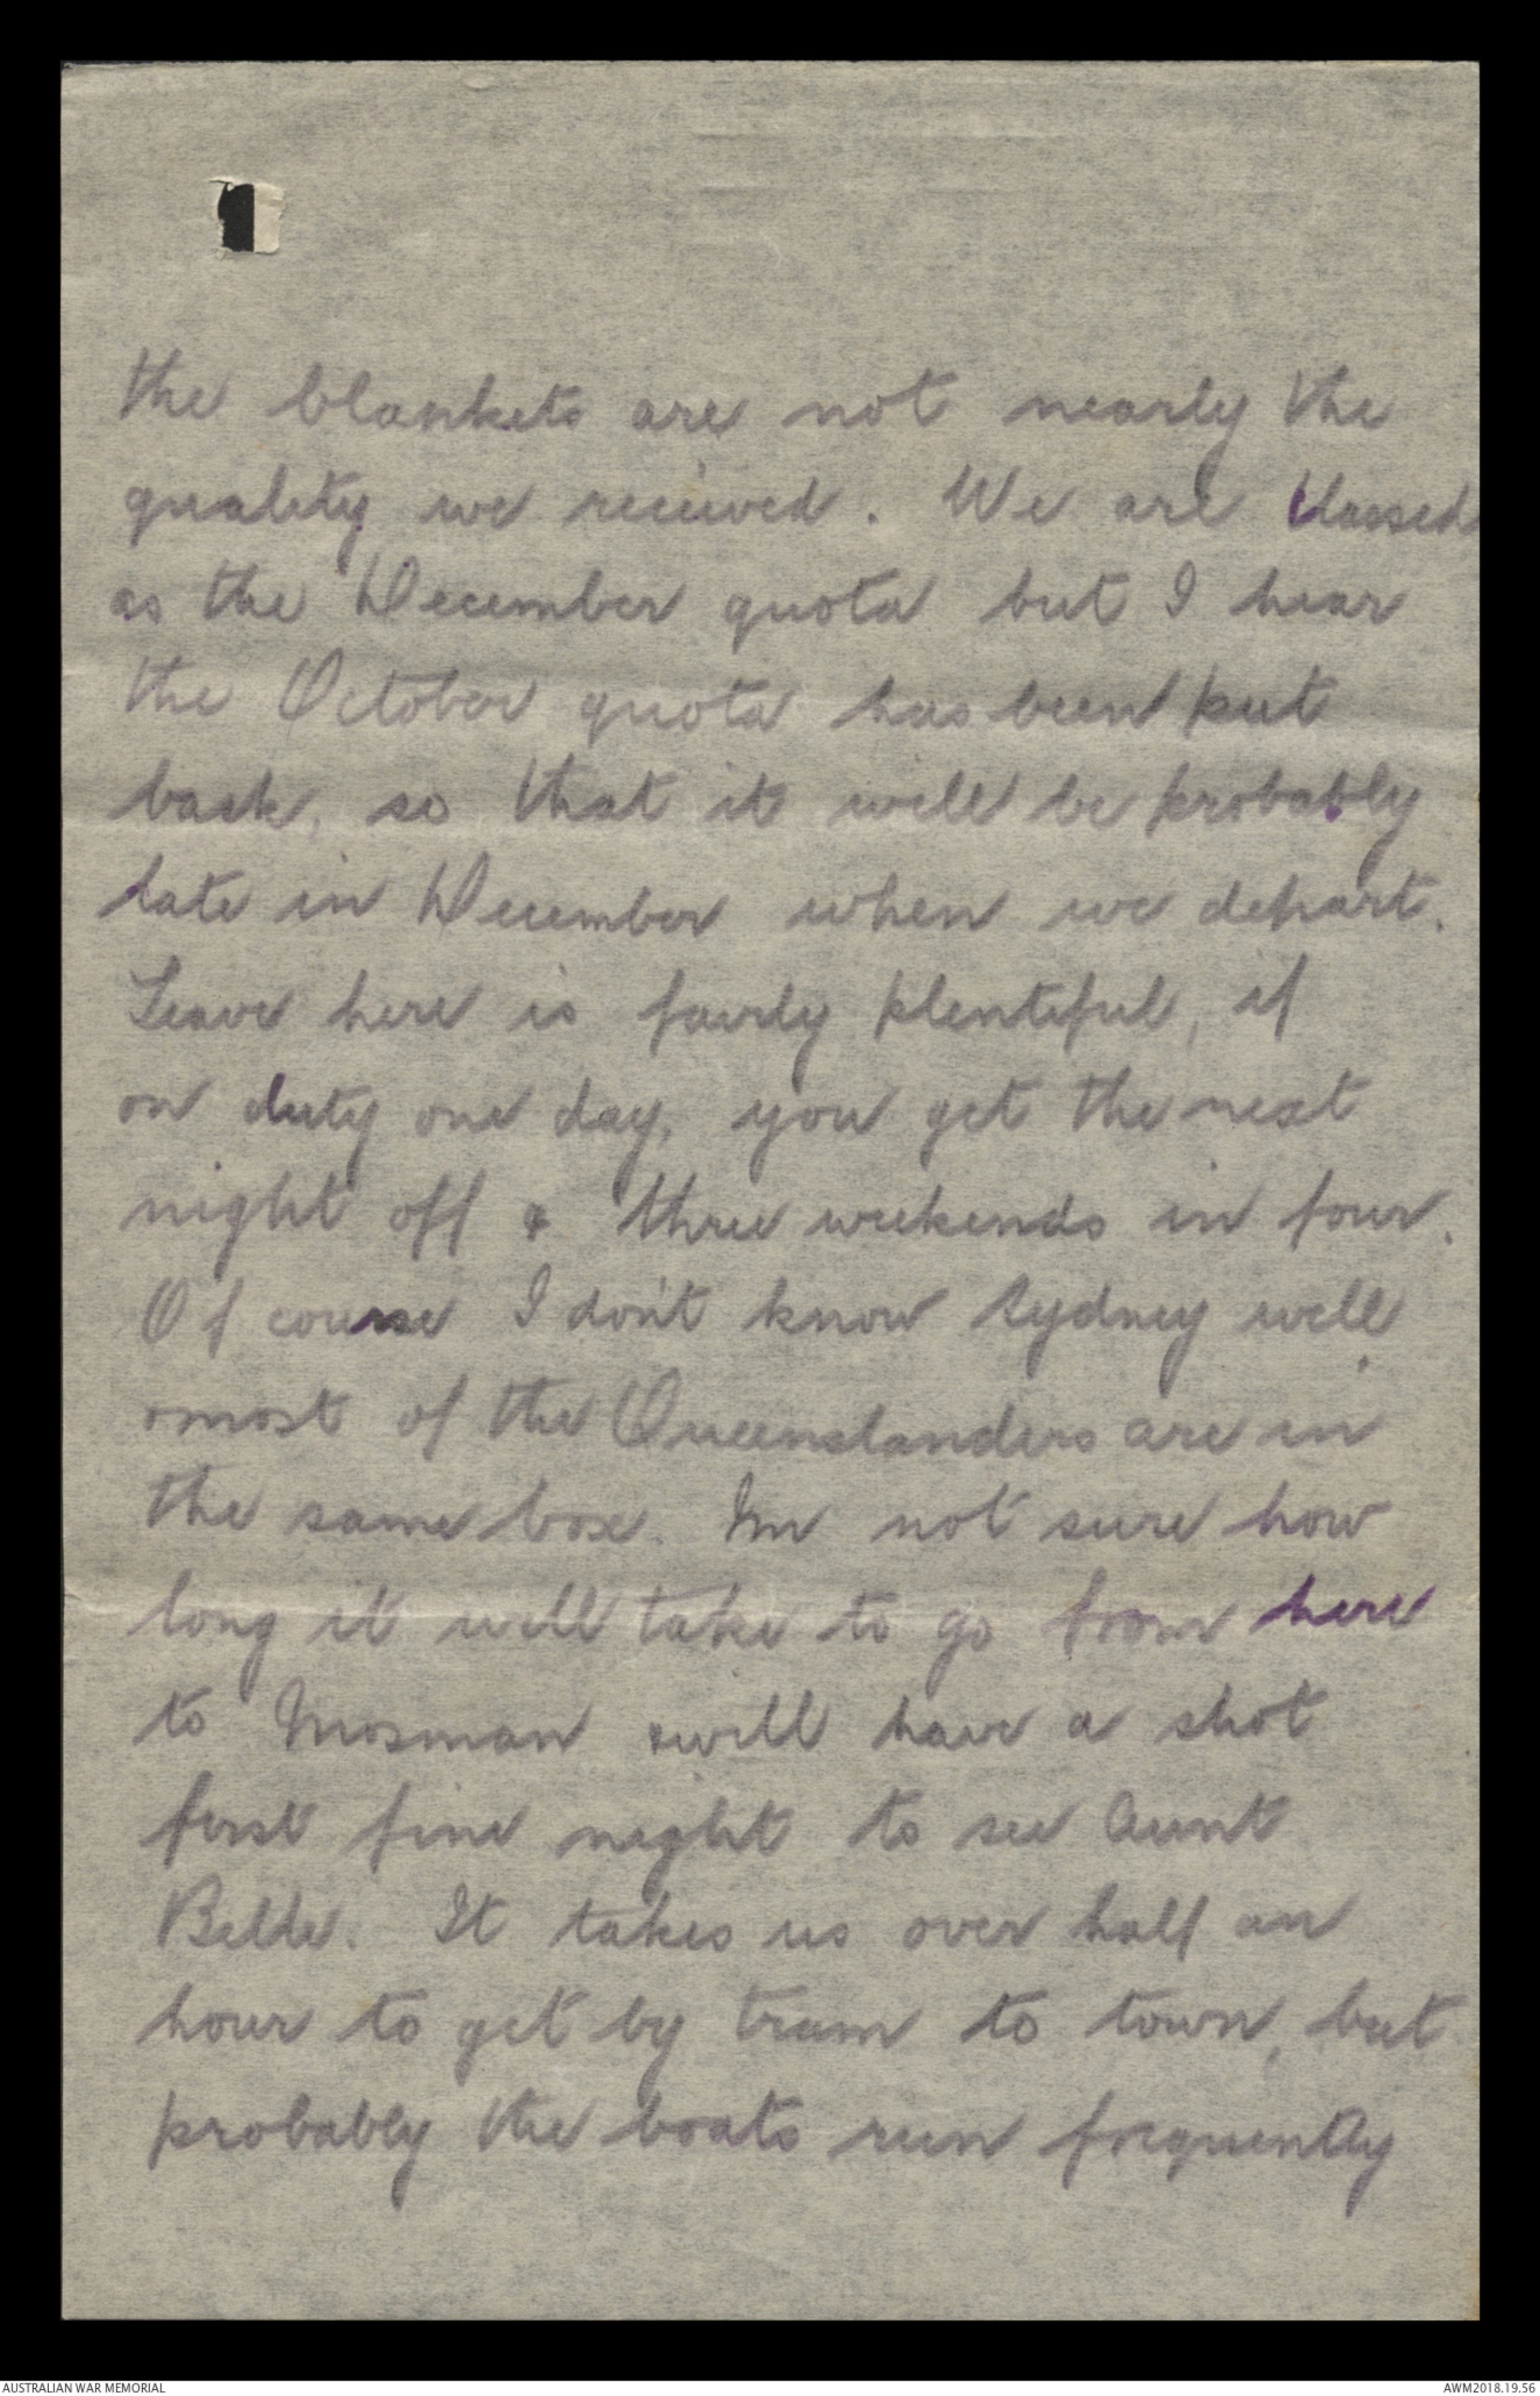 the blankets are not nearly the
quality we received. We are classed
as the December quota but I hear
the October quota has been put
back, so that it will be probably
late in December when we depart.
Leave here is fairly plentiful, if
on duty one day, you get the next
night off & three weekends in four.
Of course I don't know Sydney well
& most of the Queenslanders are in
the same box. Im not sure how
long it will take to go from here
to Mosman & will have a shot
first fine night to see Aunt
Belle. It takes us over half an
hour to get by tram to town, but
probably the boats run frequently
AUSTRALIAN WAR MEMORIAL
AWM2018.19.56